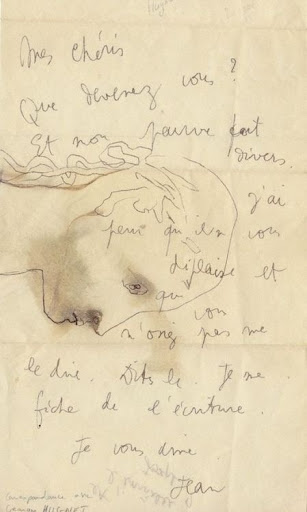 Mes chéris
Que devenez vous ?
Et mon pauvre
divers.
j'ai
peur qu'il ne vous
déplaise et
que vous
n'osiez pas me
le dire. Dites le. Je me
fiche de l'écriture.
Je vous aime
Jean
correspondance